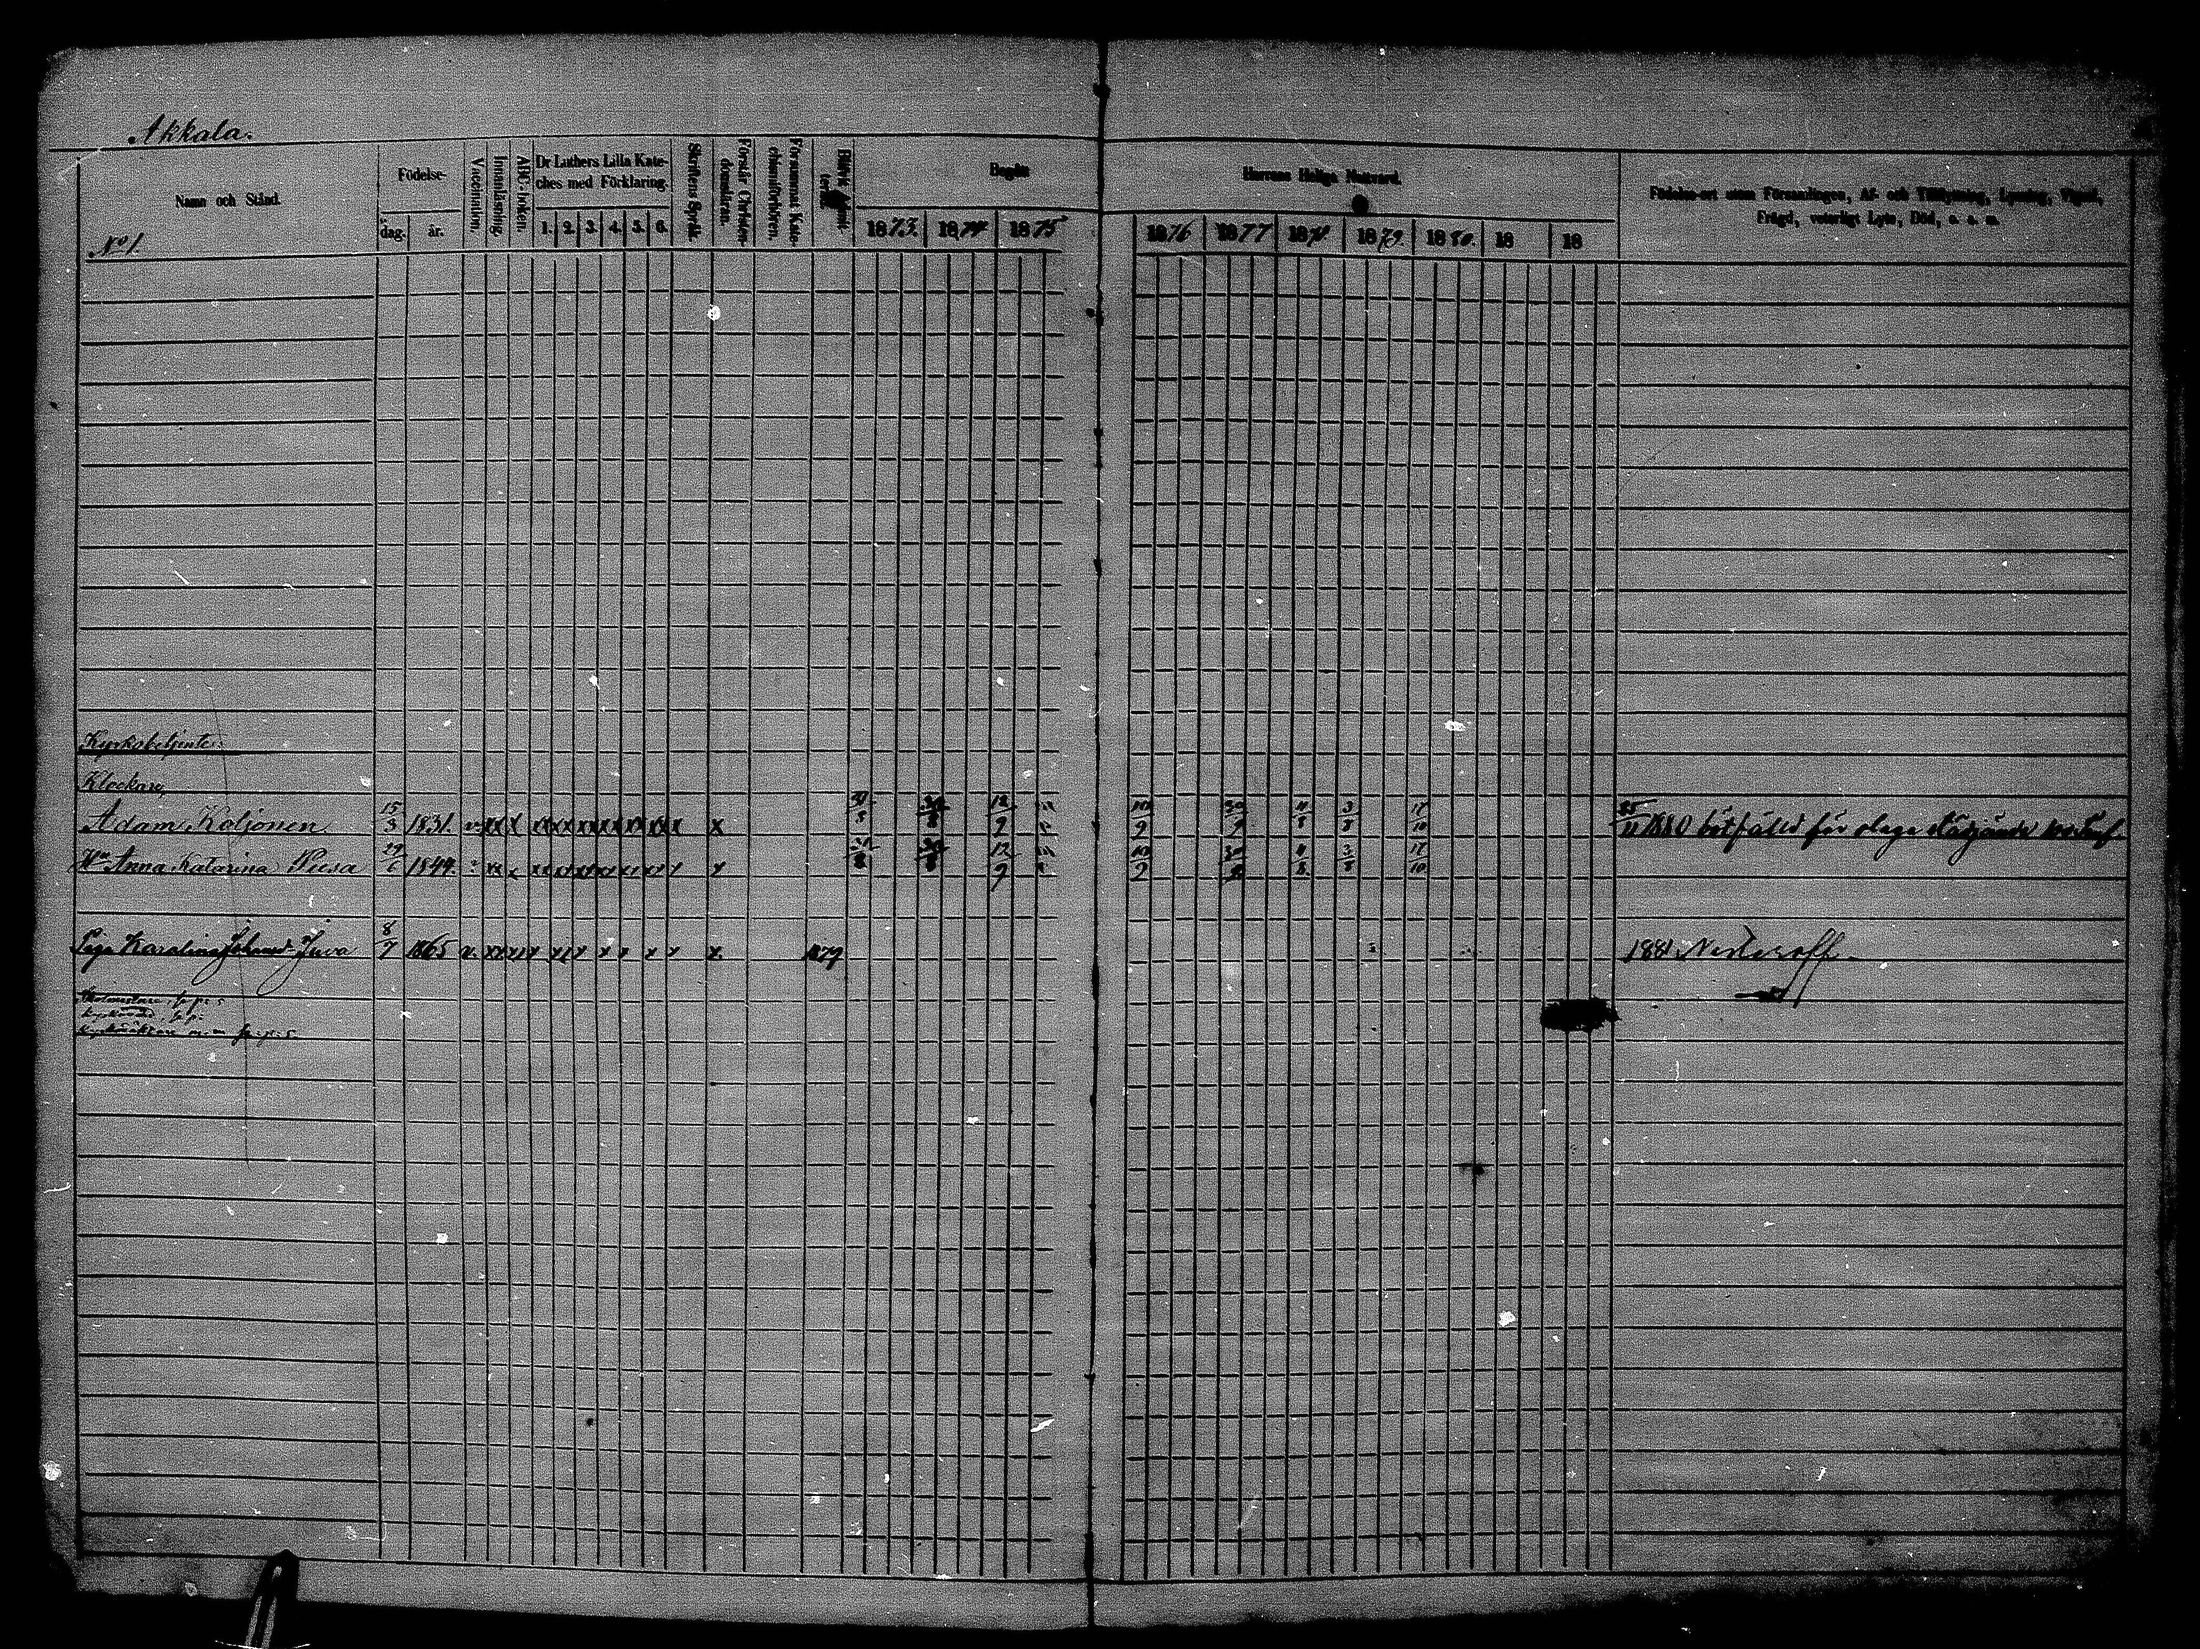 Akkala.
Namn och Stånd.
Födelse-
dag. år.
Vaccination.
Innanläsning.
ABC-boken.
Dr Luthers Lilla Kate-
ches med Förklaring.
1. 2. 3. 4. 5. 6.
Skriftens Språk.
Förstår Christen-
domsläran.
Försummat Kate-
chismiförhören.
Begått
Herrans Heliga Nattvard.
1873. 1874 1875
1876 1877 1878 1879. 1880. 18 18
Födelse-ort utom Församlingen, Af- och Tillflyttning, Lysning, Vigsel,
Frägd, veterligt Lyte, Död, o. s. m.
No 1.
Kyrkobetjente.
Klockare,
Adam Koljonen 15/3 1831. v. xx x xx xx xx xx xx xx x x 31/8 30/8 12/9 10/9 30/9 4/8 3/8 17/10 25/11 1880 bötfälld för olaga
Hu Anna Katarina 29/6 1844. xx x x x 31/8 30/8 12/9 10/9 30/8 4/8 3/8 17/10
Piga Karolina Juva 8/7 1865 v. xx x x x x x. 1879 1881